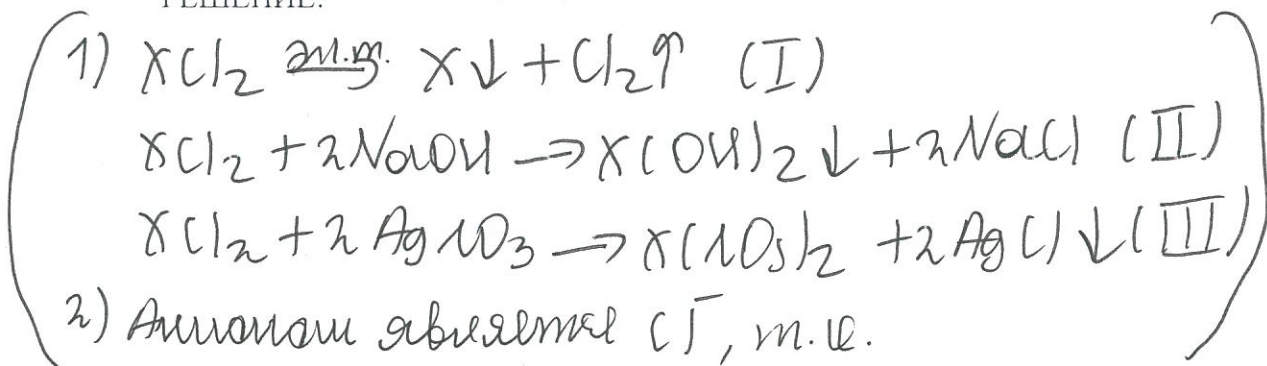 РЕШЕНИЕ:
1) XCl₂ эл.т. X↓ + Cl₂↑ (I)
XCl₂ + 2NaOH → X(OH)₂↓ + 2NaCl (II)
XCl₂ + 2AgNO₃ → X(NO₃)₂ + 2AgCl↓ (III)
2) Анионом является Cl⁻, т.к.